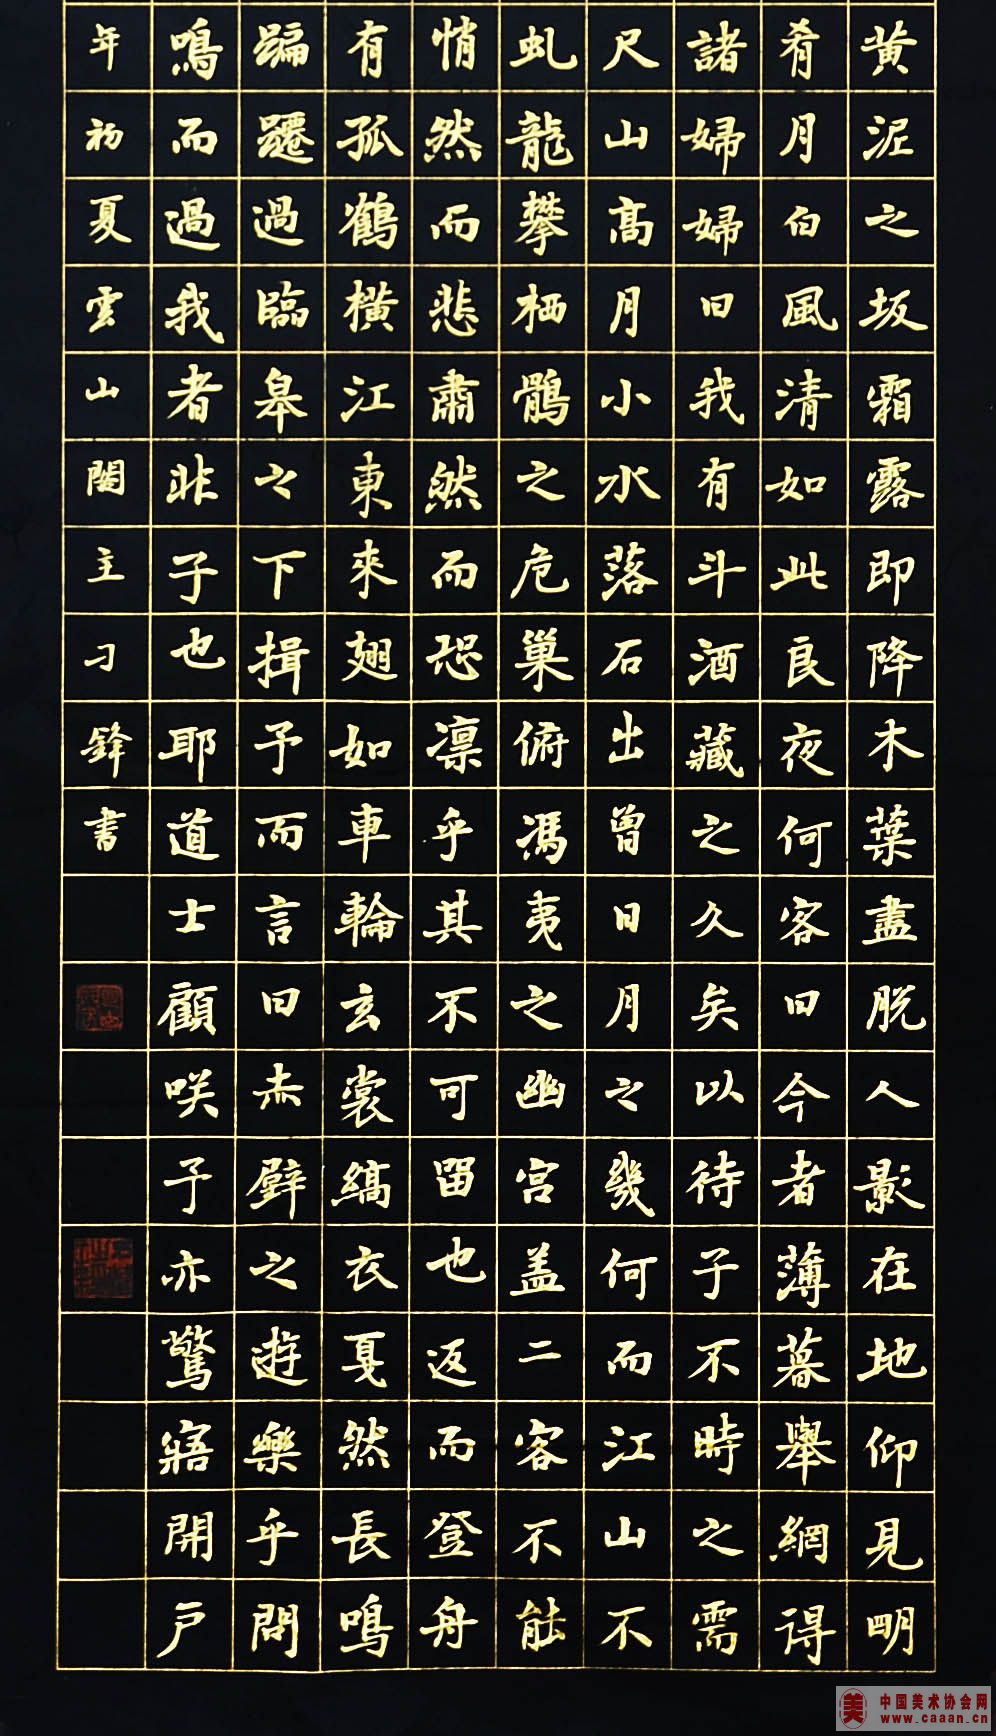 黄泥之坂霜露即降木葉盡脱人影在地仰見明
肴月白風清如此良夜何客曰今者薄暮舉網得
諸婦婦曰我有斗酒藏之久矣以待子不時之需
尺山高月小水落石出曾日月之幾何而江山不
虬龍攀栖鶻之危巢俯馮夷之幽宫盖二客不能
悄然而悲肅然而恐凛乎其不可留也返而登舟
有孤鶴橫江東來翅如車輪玄裳縞衣戛然長鳴
蹁躚過臨皋之下揖予而言曰赤壁之遊樂乎問
鳴而過我者非子也耶道士顧咲予亦驚寤開户
年初夏雲山閣主刁鋒書
中国美术协会网
www.caaan.cn